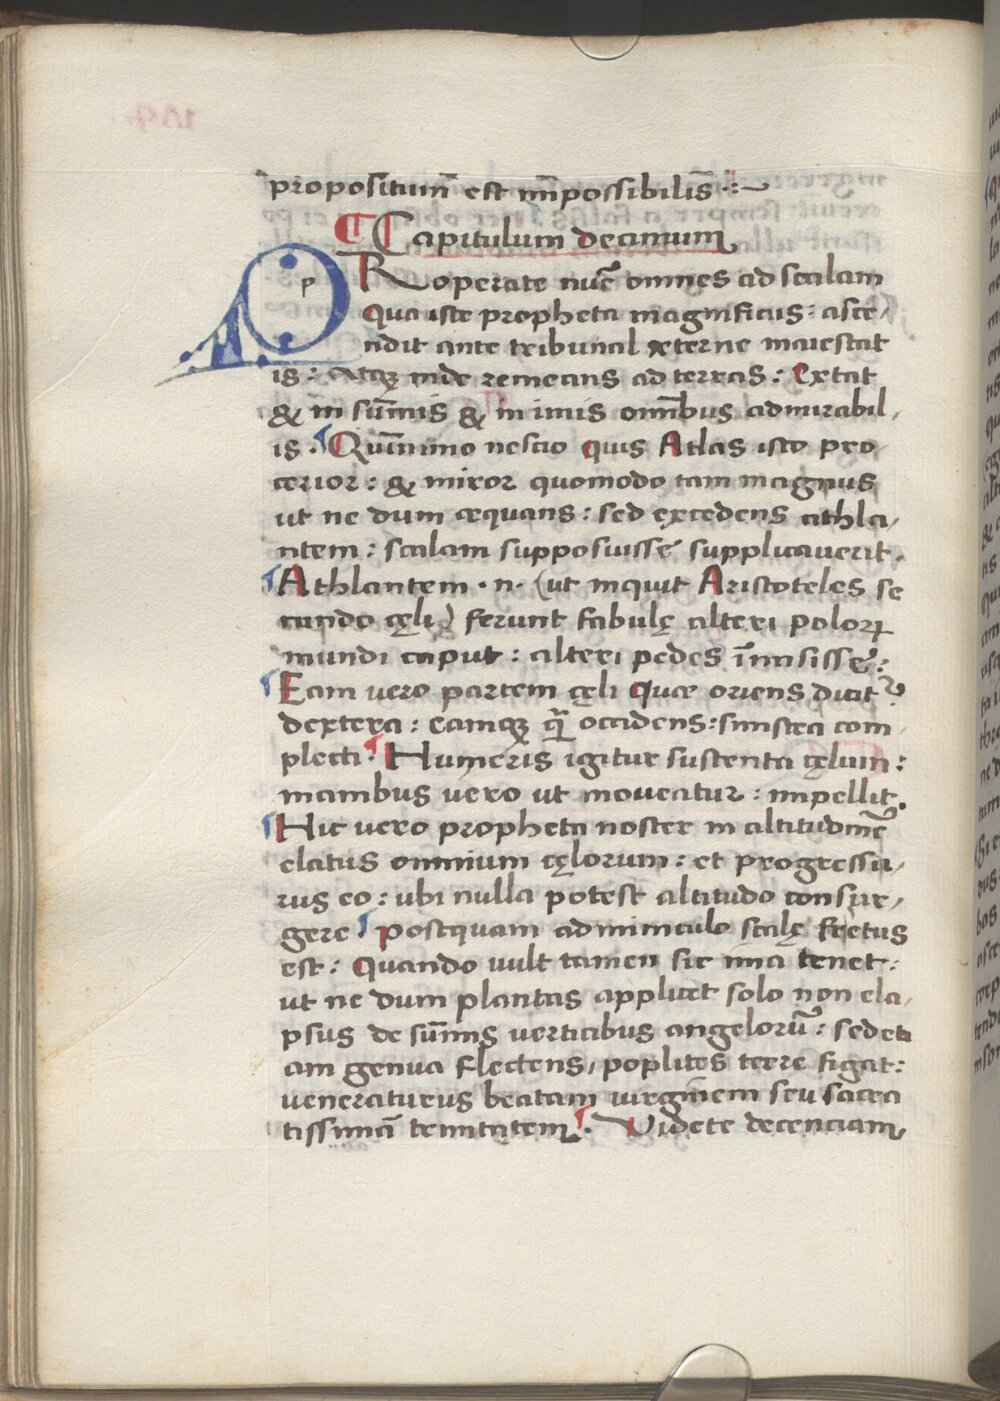 propositum̄ est im̄possibilis̄ :~
¶ Capitulum decimum
PRoperate nuc̄ omnes ad scalam
Qua iste propheta magnificus: asce/
ndit ante tribunal ęterne maiestat
is: Atqꝫ inde remeans ad terras: Extat
& in sum̄is & in imis omn̄ibus admirabil/
is. ¶ Quin̄imo nescio quis Atlas isto pro
cerior: & miror quomodo tam magnus
ut ne dum æquans: sed excedens athla/
ntem: scalam supposuisse supplicaverit.
¶ Athlantem .n. (ut inquit Aristoteles se
cundo cęli) ferunt fabulę alteri poloꝝ
mundi caput: alteri pedes īmisisse:
¶ Eam vero partem cęli quæ oriens dicit᷑
dextera: eamqꝫ q̄ occidens: sinistra com
plecti. ¶ Humeris igitur sustenta cęlum:
manibus vero ut moveatur: impellit.
¶ Hic vero propheta noster in altitudinē
elatus omnium cęlorum: et progressu/
rus eo: ubi nulla potest altitudo consur/
gere ¶ postquam adminiculo scalę fretus
est: Quando vult tamen sic ima tenet:
ut ne dum plantas applicet solo non ela/
psus de sum̄is verticibus angelorū: sed eti
am genua flectens, poplites terre figat:
veneraturus beatam virginem seu sacra
tissimā trinitatem. ¶ Videte decenciam